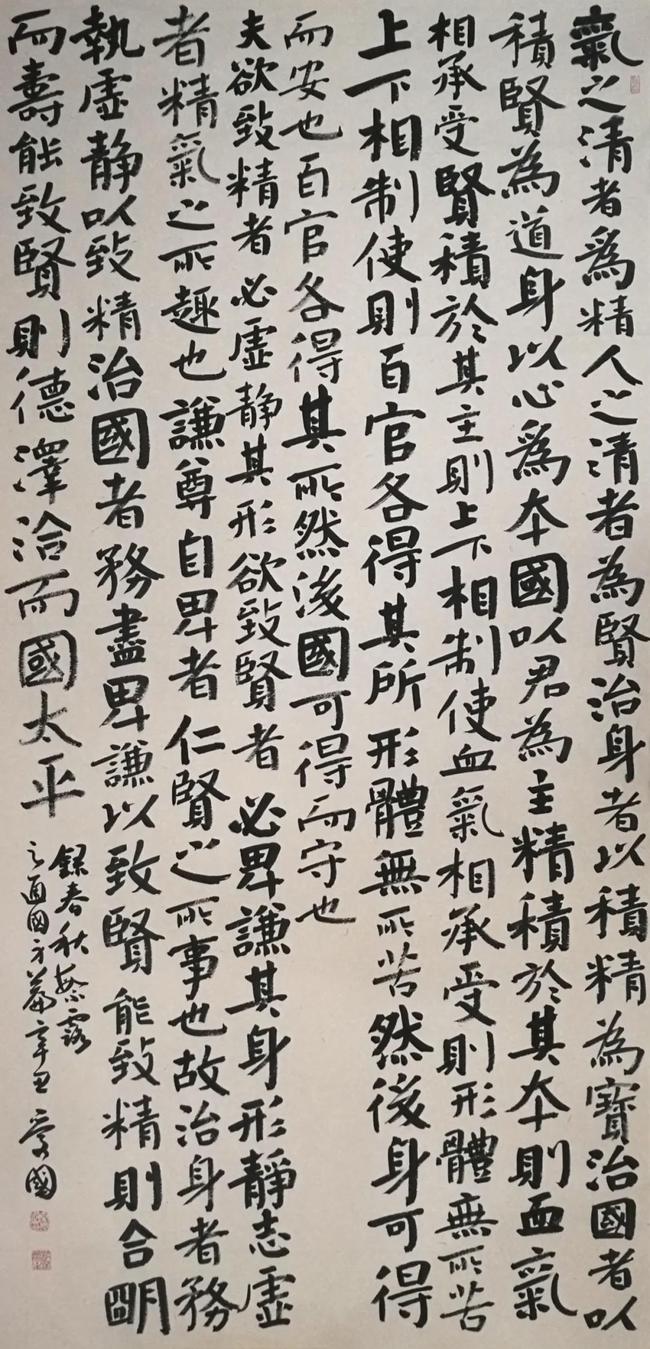 氣之清者爲精人之清者為賢治身者以積精為寶治國者以
積賢為道身以心爲本國以君為主精積於其本則血氣
相承受賢積於其主則上下相制使血氣相承受則形體無所苦
上下相制使則百官各得其所形體無所苦然後身可得
而安也百官各得其所然後國可得而守也
夫欲致精者必虛静其形欲致賢者必卑謙其身形静志虛
者精氣之所趣也謙尊自卑者仁賢之所事也故治身者務
執虛静以致精治國者務盡卑謙以致賢能致精則合明
而壽能致賢則德澤洽而國太平
錄春秋繁露
之通國身篇辛丑國